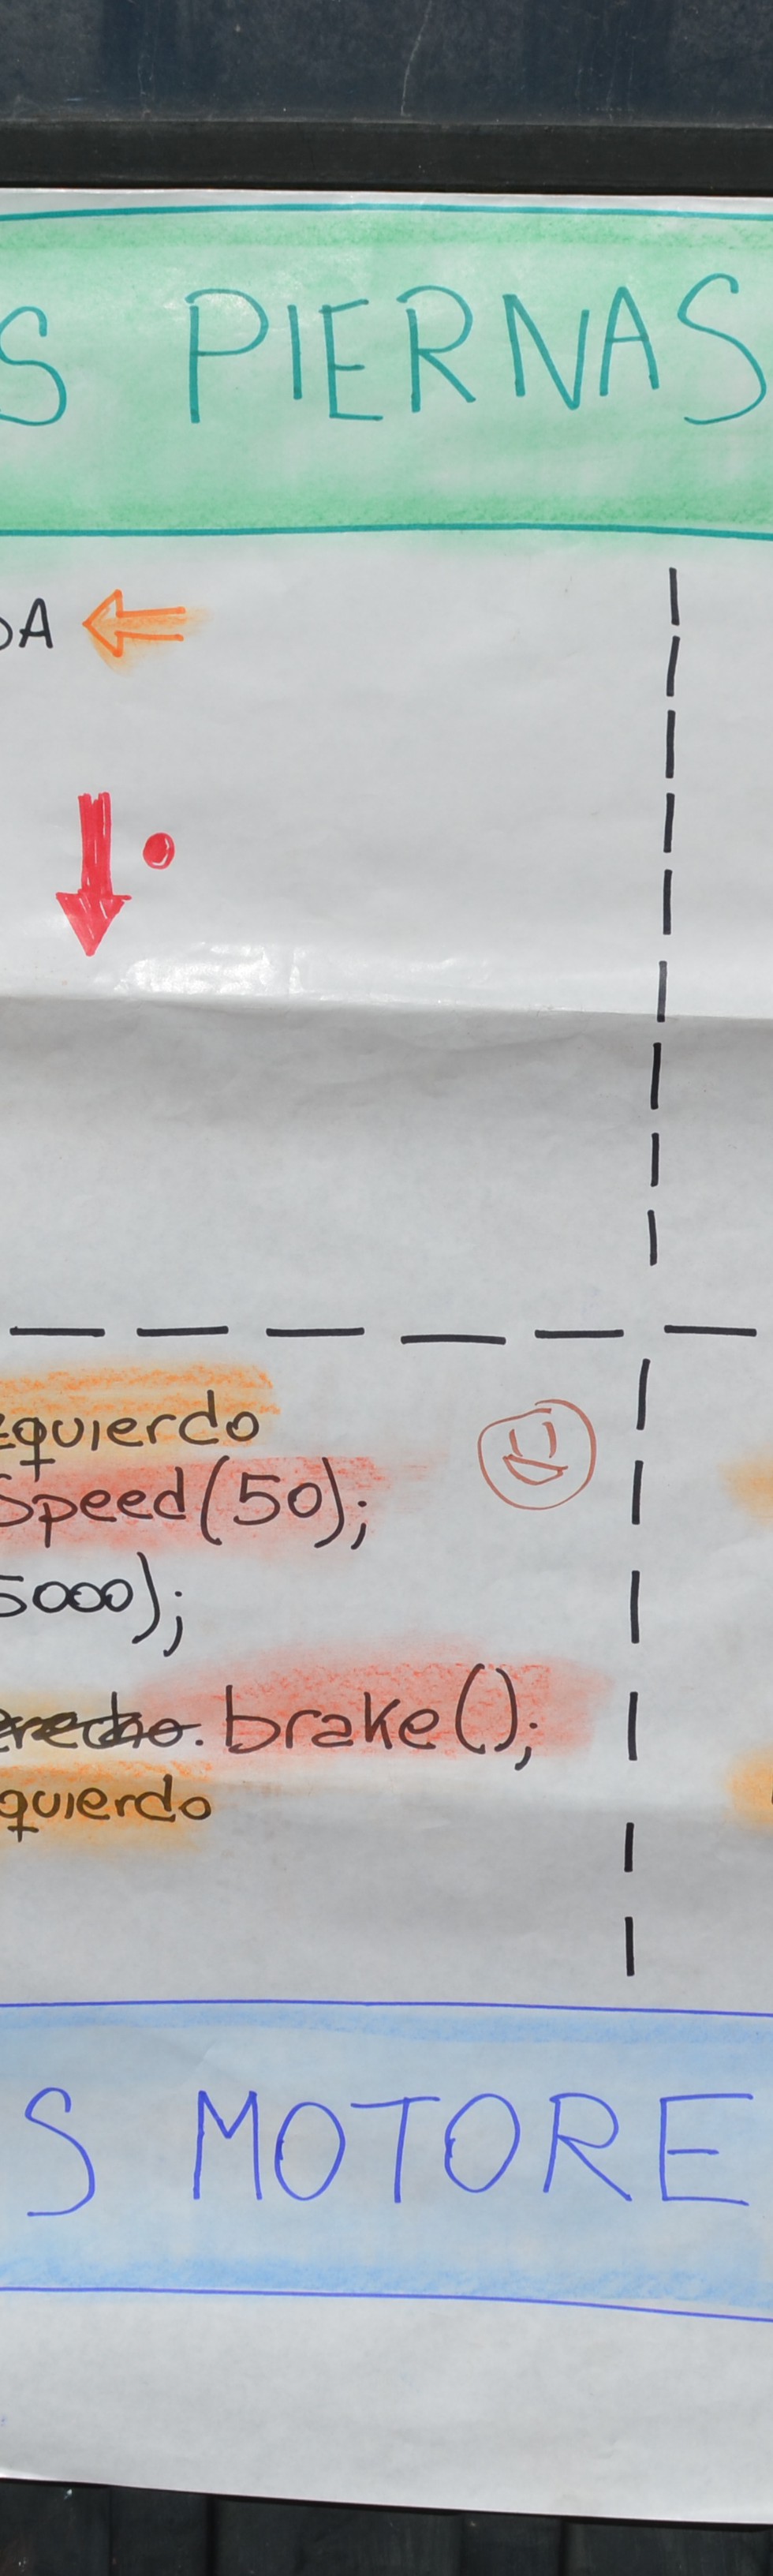 S PIERNAS
DA
zquierdo
Speed(50);
5000);
erecho.brake();
quierdo
S MOTORE